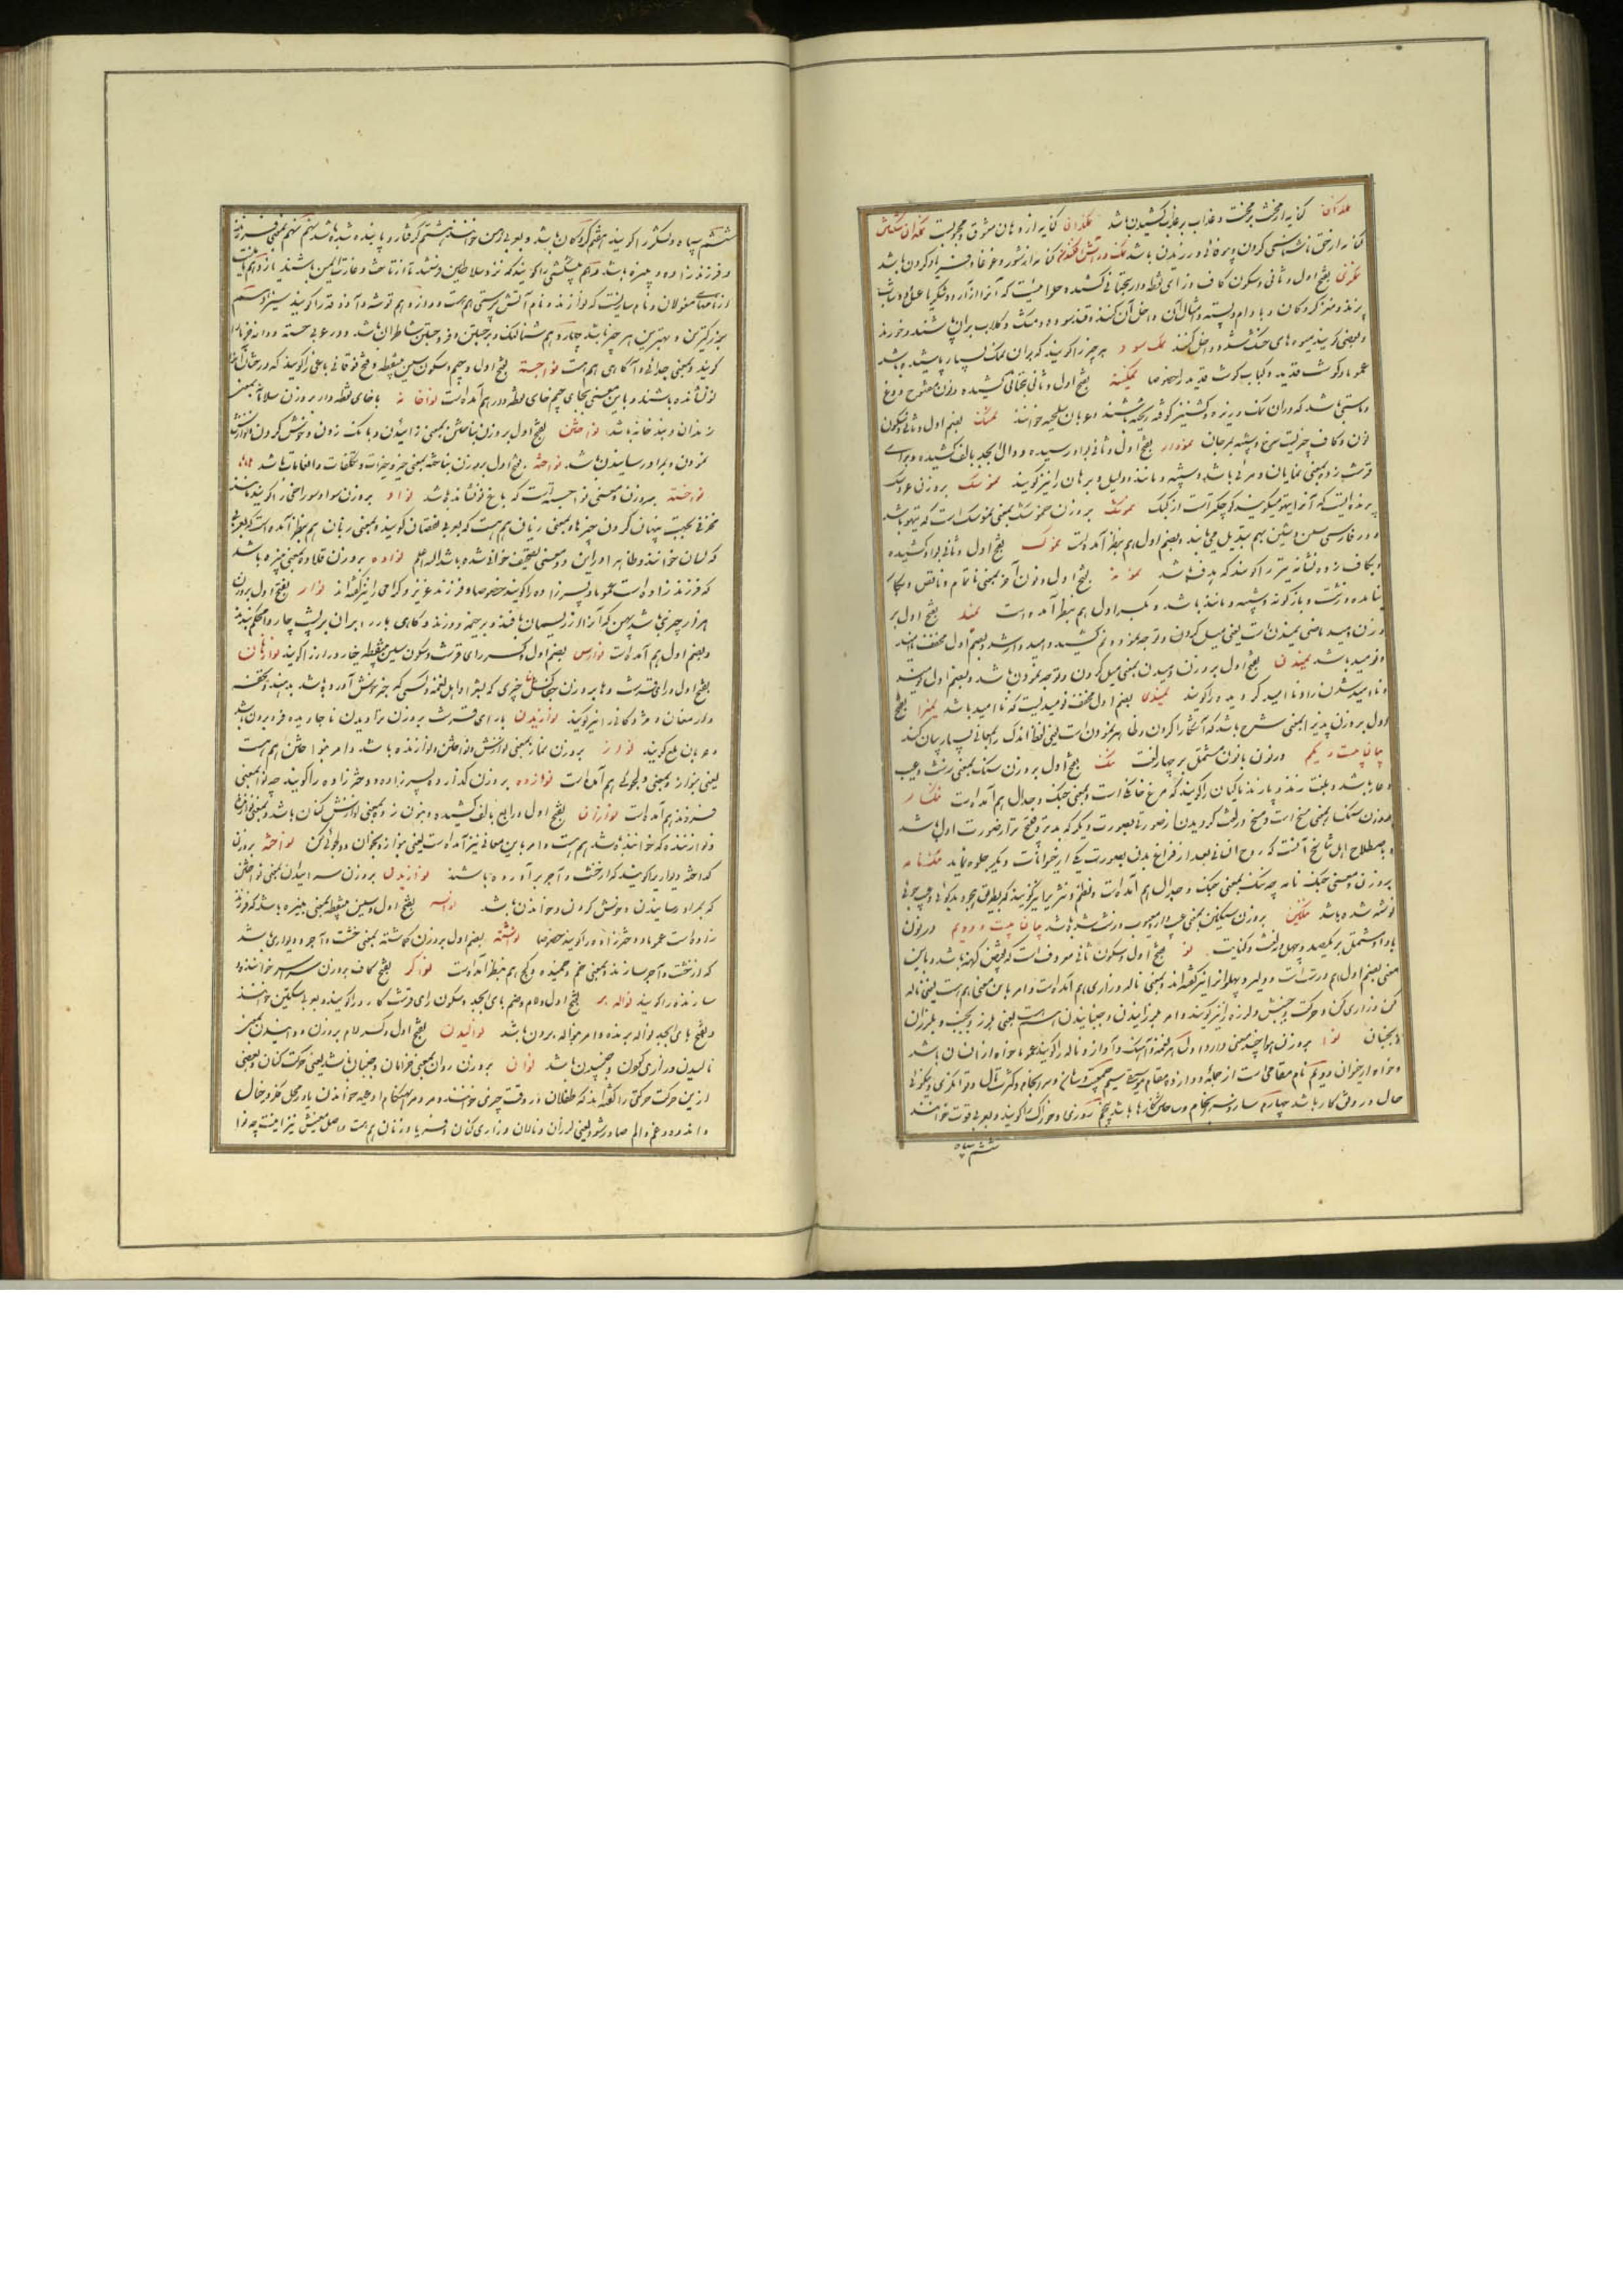 کنایه از محنت بر محنت و عذاب بر عذاب کشیدن باشد نمکدان کنایه از دهان معشوق و محبوبست
کنایه از حق ناشناسی کردن و بیوفائی ورزیدن باشد نمک در آتش افکندن کنایه از شور و غوغا و فریاد کردن باشد
بفتح اول و ثانی و سکون کاف و زای نقطه دار بتحتانی کشیده حلوائیست که آنرا از آرد و
پزند و مغز گردکان و بادام و پسته و امثال آن داخل آن کنند و قند سوده و مشک و گلاب بر آن پاشند و خورند
و بعضی گویند میوه های خشک شده داخل کنند نمک سود هر چیز را گویند که بر آن نمک بسیار پاشیده باشند
عموما و گوشت قدید و کباب گوشت قدید را خصوصا نمکینه بفتح اول و ثانی بتحتانی کشیده و نون مفتوح دوغ
و ماستی باشد که در آن نمک و ریزه گشنیز کوفته ریخته باشند و عربان ملحیه خوانند نمنک بضم اول و ثانی و سکون
نون و کاف چیزیست سرخ و شبیه بمرجان نمودار بفتح اول و ثانی بواو رسیده و دال ابجد بالف کشیده و برای
قرشت زده بمعنی نمایان و مرئی باشد و شبیه و مانند و دلیل و برهان را نیز گویند نموسک بروزن عروسک
پرنده ایست که آنرا تیهو میگویند و کوچکتر است از کبک نموشک بروزن خموشک بمعنی نموسک است که تیهو باشد
و در فارسی سین و شین بهم تبدیل می یابند و بضم اول هم بنظر آمده است نموک بفتح اول و ثانی بواو کشیده
و بکاف زده نشانه تیر را گویند که هدف باشد نمونه بفتح اول و نون آخر بمعنی ناتمام و ناقص و بکار
نیامده و زشت و باژگونه و شبیه و مانند باشد و بکسر اول هم بنظر آمده است نمید بفتح اول بر
وزن دمید ماضی نمیدن است یعنی میل کردن و توجه نمود و نم کشید و امیدوار شد و بضم اول مخفف ناامید
و نومید باشد نمیدن بفتح اول بروزن دمیدن بمعنی میل کردن و توجه نمودن باشد و بضم اول نومید
و ناامید شدن را و ناامید گردیده را گویند نمیدی بضم اول مخفف نومیدیست که ناامید باشد نمیزا بفتح
اول بروزن پذیرا بمعنی شرح باشد که آشکارا کردن و نمودنست یعنی لفظ اندک را بمعانی بسیار بیان کنند
بیان بیست و یکم در نون با نون مشتمل بر چهار لغت ننگ بفتح اول بروزن سنگ بمعنی زشت و عیب
و عار باشد و بلغت زند و پازند ماکیان را گویند که مرغ خانگی است و بمعنی جنگ و جدال هم آمده است ننگسار
بروزن سنگسار بمعنی مسخ است و مسخ در لغت گردیدن از صورتی بصورت دیگر که بدتر و قبیح تر از صورت اول باشد
و باصطلاح اهل تناسخ آنست که روح انسانی بعد از فراغ بدن بصورت یکی از حیوانات دیگر جلوه نماید ننگ نامه
بروزن و معنی جنگ نامه چه ننگ بمعنی جنگ و جدال هم آمده است و نظم و نثریرا نیز گویند که بطریق هجو و بدگوئی و عیب جوئی
نوشته شده باشد ننگین بروزن سنگین بمعنی عیب دار و معیوب و زشت شده باشد بیان بیست و دویم در نون
با واو مشتمل بر یکصد و چهل و لغت و کنایت نو بفتح اول و سکون ثانی معروفست که نقیض کهنه باشد و باین
معنی بضم اول هم درست است و دلیر و پهلوانرا نیز گفته اند و بمعنی ناله و زاری هم آمده است و امر باین معنی هم هست یعنی ناله
کن و زاری کن و حرکت و جنبش و لرزه را نیز گویند و امر بلرزانیدن و جنبانیدن هم هست یعنی بلرز و بجنب و بلرزان
و بجنبان نوا بروزن هوا چند معنی دارد اول نغمه و آهنگ و آواز و ناله را گویند عموما خواه از انسان باشد
و خواه از حیوان دویم نام مقامی است از جمله دوازده مقام موسیقی سیم جمعیت و سامان و سرانجام و کثرت مال و توانگری و نیکوئی
حال و رونق کار باشد چهارم ساز و سرانجام و ساختگی کارها باشد پنجم روزی و خوراک را گویند و بعربی قوت خوانند
ششم سپاه
ششم سپاه و لشکر را گویند هفتم گروگان باشد و بعربی رهن خوانند هشتم گرفتار و پابند شده باشد نهم بمعنی فرزند
و فرزندزاده و نبیره باشد دهم پیشکشی را گویند که نزد سلاطین فرستند تا از تاخت و غارت ایمن باشند یازدهم
از نامهای مغولان و نام سازیست که نوازند و نام آتش پرستی هم هست دوازدهم توشه و آذوقه را گویند سیزدهم
بزرگترین و بهترین هر چیز باشد چهاردهم شتالنگ و برجستن و فرو جستن شاطران باشد و در عربی خسته و دانه خرما را
گویند و بمعنی جدائی و آگاهی هم هست نواجسته بفتح اول و جیم و سکون سین بینقطه و فتح فوقانی باغی را گویند که درختان آنرا
نو نشانده باشند و باین معنی بجای جیم خای نقطه دار هم آمده است نواخانه با خای نقطه دار بروزن سلاخانه بمعنی
زندان و بندخانه باشد نواختن بفتح اول بروزن شناختن بمعنی زائیدن و بانگ زدن و خوش کردن و نوازش
نمودن و بمراد رسانیدن باشد نواخته بفتح اول بروزن نساخته بمعنی چیز و خیرات و تکلفات و انعامات باشد
نواخسته بروزن و معنی نواجسته است که باغ نونشانده باشد نواد بروزن سواد سوراخی را گویند مانند
مخزنی بجهت پنهان کردن چیزها و بمعنی زیان هم هست که بعربی نقصان گویند و بمعنی زبان هم بنظر آمده است که بعربی
که لسان خوانند و ظاهرا در این دو معنی تصحیف خوانی شده باشد الله اعلم نواده بروزن قلاده بمعنی نبیره باشد
که فرزندزاده است عموما و پسرزاده را گویند خصوصا و فرزند عزیز و گرامی را نیز گفته اند نوار بفتح اول بروزن
هزار چیزی باشد پهن که آنرا از ریسمان بافند و بر خیمه دوزند و گاهی بار را بدان بر پشت چاروا محکم بندند
و بضم اول هم آمده است نوارس بضم اول و کسر رای قرشت و سکون سین بینقطه خیار دراز را گویند نوارهان
بفتح اول و رای قرشت و ها بروزن چیزی که بشعرا و اهل نغمه و کسی که خبر خوش آورده باشد بدهند و تحفه
و ارمغان و مژدگانی را نیز گویند نواریدن با رای قرشت بروزن تراویدن ناجاویده فرو بردن باشد
و عربان بلع گویند نواز بروزن نماز بمعنی نوازش و نواختن و نوازنده باشد و امر بنواختن هم هست
یعنی بنواز و بمعنی دلجوئی هم آمده است نوازاده بروزن گذارده پسرزاده و دخترزاده را گویند چه نوا بمعنی
فرزند هم آمده است نوازان بفتح اول و رابع بالف کشیده و بنون زده بمعنی نوازش کنان باشد و بمعنی نوازنده
و نوازنده که خواننده باشد هم هست و امر باین معانی نیز آمده است یعنی بنواز و بخوان و دلجوئی کن نواخته بروزن
گداخته دیواریرا گویند که از خشت و آجر برآورده باشند نوازیدن بروزن سرائیدن بمعنی نواختن
که بمراد رسانیدن و خوش کردن و خواندن باشد نواسه بفتح اول و سین بینقطه بمعنی نبیره باشد که فرزند
زاده است عموما و دخترزاده را گویند خصوصا نواشته بضم اول بروزن گماشته بمعنی خشت و آجر و دیواری باشد
که از خشت و آجر سازند و بمعنی خم و خمیده و کج هم بنظر آمده است نواگر بفتح کاف بروزن سراسر خواننده و
سازنده را گویند نواله بر بفتح اول و لام و ضم بای ابجد و سکون رای قرشت کارد را گویند و بعربی سکین خوانند
و بفتح بای ابجد نواله برنده و امر بنواله بردن باشد نوالیدن بفتح اول و کسر لام بروزن دوانیدن بمعنی
نالیدن و زاری کردن و جنبیدن باشد نوان بروزن روان بمعنی خرامان و جنبان باشد یعنی حرکت کنان و بعضی
ازین حرکت حرکتی را گفته اند که طفلان در وقت چیزی خواندن و مردم هنگام ادعیه خواندن یا در محل فکر و خیال
و اندوه و غم و الم صادر شود و بمعنی لرزان و نالان و زاری کنان و فریاد زنان هم هست و اصل معنیش نیز اینست چه نوا